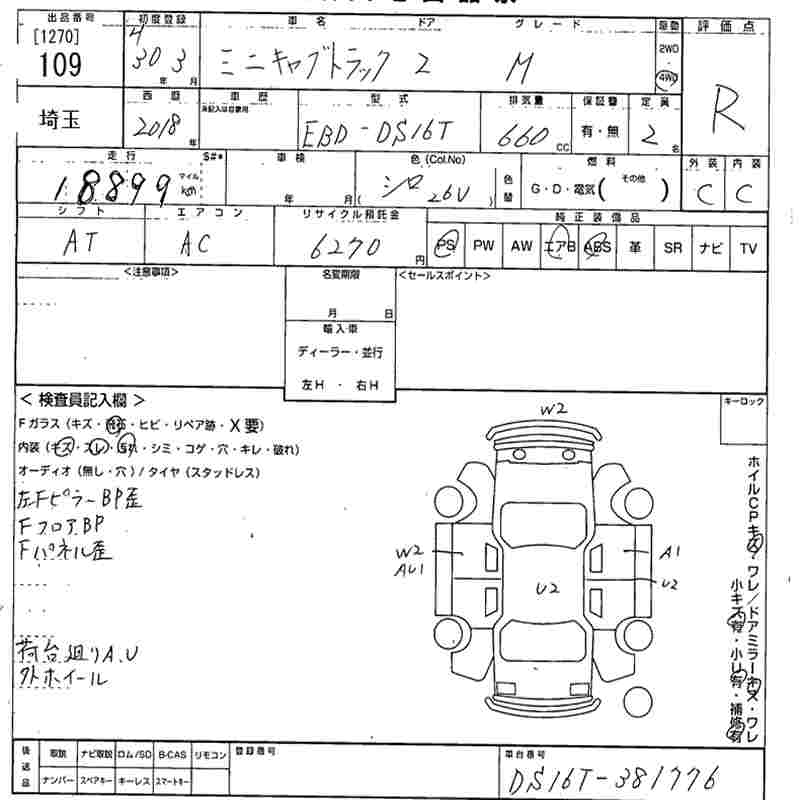 出品番号 初度登録 車名 ドア グレード 駆動 評価点
[1270] 109
4
30 3 年 月
ミニキャブトラック 2 M
2WD 4WD
R
埼玉
西暦 車歴 型式 排気量 保証書 定員
2018 年
EBD-DS16T
660 CC
有・無
2 名
外装 内装
C C
走行 $#* 車検 色 (Col.No) 燃料
18899 マイル km
年 月
( シロ 26U ) 色替
G・D・電気( その他 )
シフト エアコン リサイクル預託金 純正装備品
AT AC 6270 円
PS PW AW エアB ABS 革 SR ナビ TV
<注意事項> 名変期限 <セールスポイント>
月 日
輸入車
ディーラー・並行
左H ・ 右H
<検査員記入欄> キーロック
Fガラス (キズ・飛石・ヒビ・リペア跡・X要)
内装 (キズ・スレ・汚れ・シミ・コゲ・穴・キレ・破れ)
オーディオ (無し・穴) / タイヤ (スタッドレス)
左FピラーBP歪
FフロアBP
Fパネル歪
荷台廻りA.U
外ホイール
W2
W2
AU1
U2
A1
U2
ホイルCPキズ・ワレ/ドアミラーキズ・ワレ
小キズ有・小U有・補修有
後送品 取説 ナビ取説 ロム/SD B-CAS リモコン 登録番号 車台番号
ナンバー スペアキー キーレス スマートキー
DS16T-381776